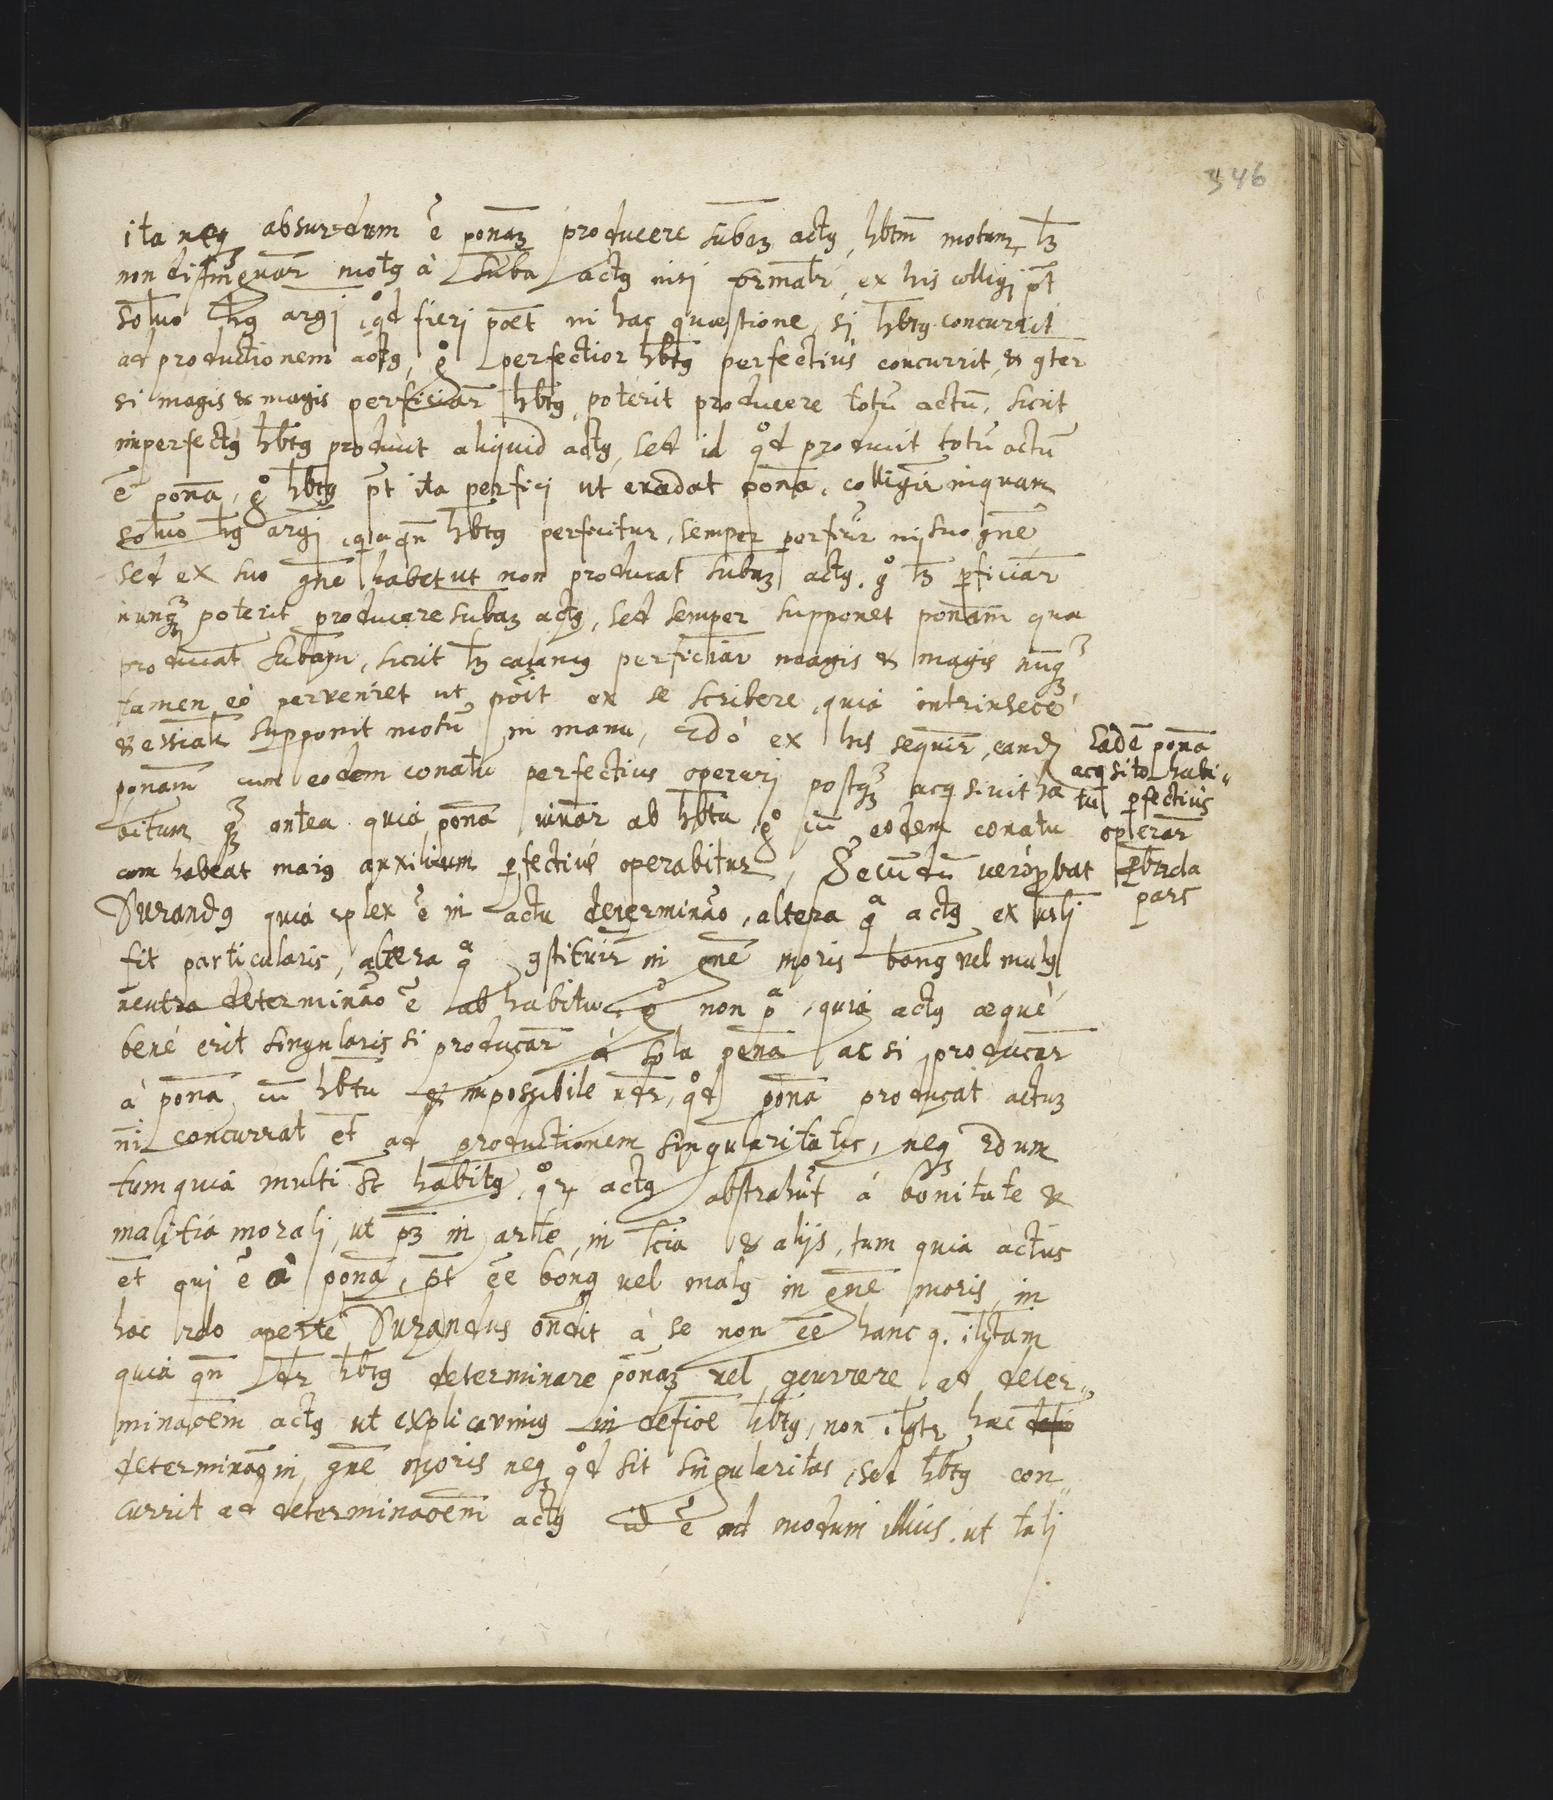 346
ita neq absurdum ē ponāz producere subāz actq, hbtm motum, tz
non distinguār motq à suba actq nisi formālr, ex his colligi pt
solūo hq argi, qd fieri poēt in hac quæstione, si hbtq concurrit
ad productionem actq, gº perfectior hbtq perfectius concurrit, & gter
si magis & magis perficiār hbtq, poterit producere totū actū, sicut
imperfectq hbtq producit aliquid actq, sed id qd producit totū actū
ē ponā, gº hbtq pt ita perfici ut evadat ponā, colligir inquam
solūo hq argi, quia qn hbtq perficitur, semper perficir in suo gne,
sed ex suo gne habet ut non producat subaz actq, gº tz pficiār
nunqz poterit producere subaz actq, sed semper supponet ponām qua
producat subām, sicut tz calamq perficiār magis & magis nūqz
tamen eò perveniret ut poīt ex se scribere, quia intrinsece
& essialr supponit motū in manu, 2dò ex his sequir, eandz
ponām cum eodem conatu perfectius operari postqz acqsivit ha
bitum qz antea quia ponā iuvār ab hbtu, gº cū eodem conatu
cum habeat maiq auxilium pfectius operabitur, Secūdū verò pbat
Eadē ponā
acqsito habi„
tu pfectiùs
operār
pars
Durandq quia 2plex ē in actu determināo, altera qª actq ex vsli
fit particularis, altera qª gstituir in gne moris bonq vel malq
neutra determināo ē ab habitu, gº non pª, quia actq æquè
benè erit singularis si producār à sola ponā ac si producār
à ponā cū hbtu & impossibile vdr, qd ponā producat actuz
nī concurrat ēt ad productionem singularitatis, neq 2dum
tum quia multi st habitq, qr actq abstrahūt à bonitate &
malitia morali, ut pz in arte, in scīa & alijs, tum quia actus
ēt qui ē à ponā, pt ēe bonq vel malq in gne moris, in
hoc 2do aperte Durandus ondit à se non ēe hanc q. iltam
quia qn dr hbtq determinare ponaz vel gcurrere ad deter„
minaoēm actq ut explicavimq in defioē hbtq, non iltgr hæc
determinaō in gne moris neq qd sit singularitas, sed hbtq con„
currit ad determinaoēm actq id ē ad modum illius, ut tali